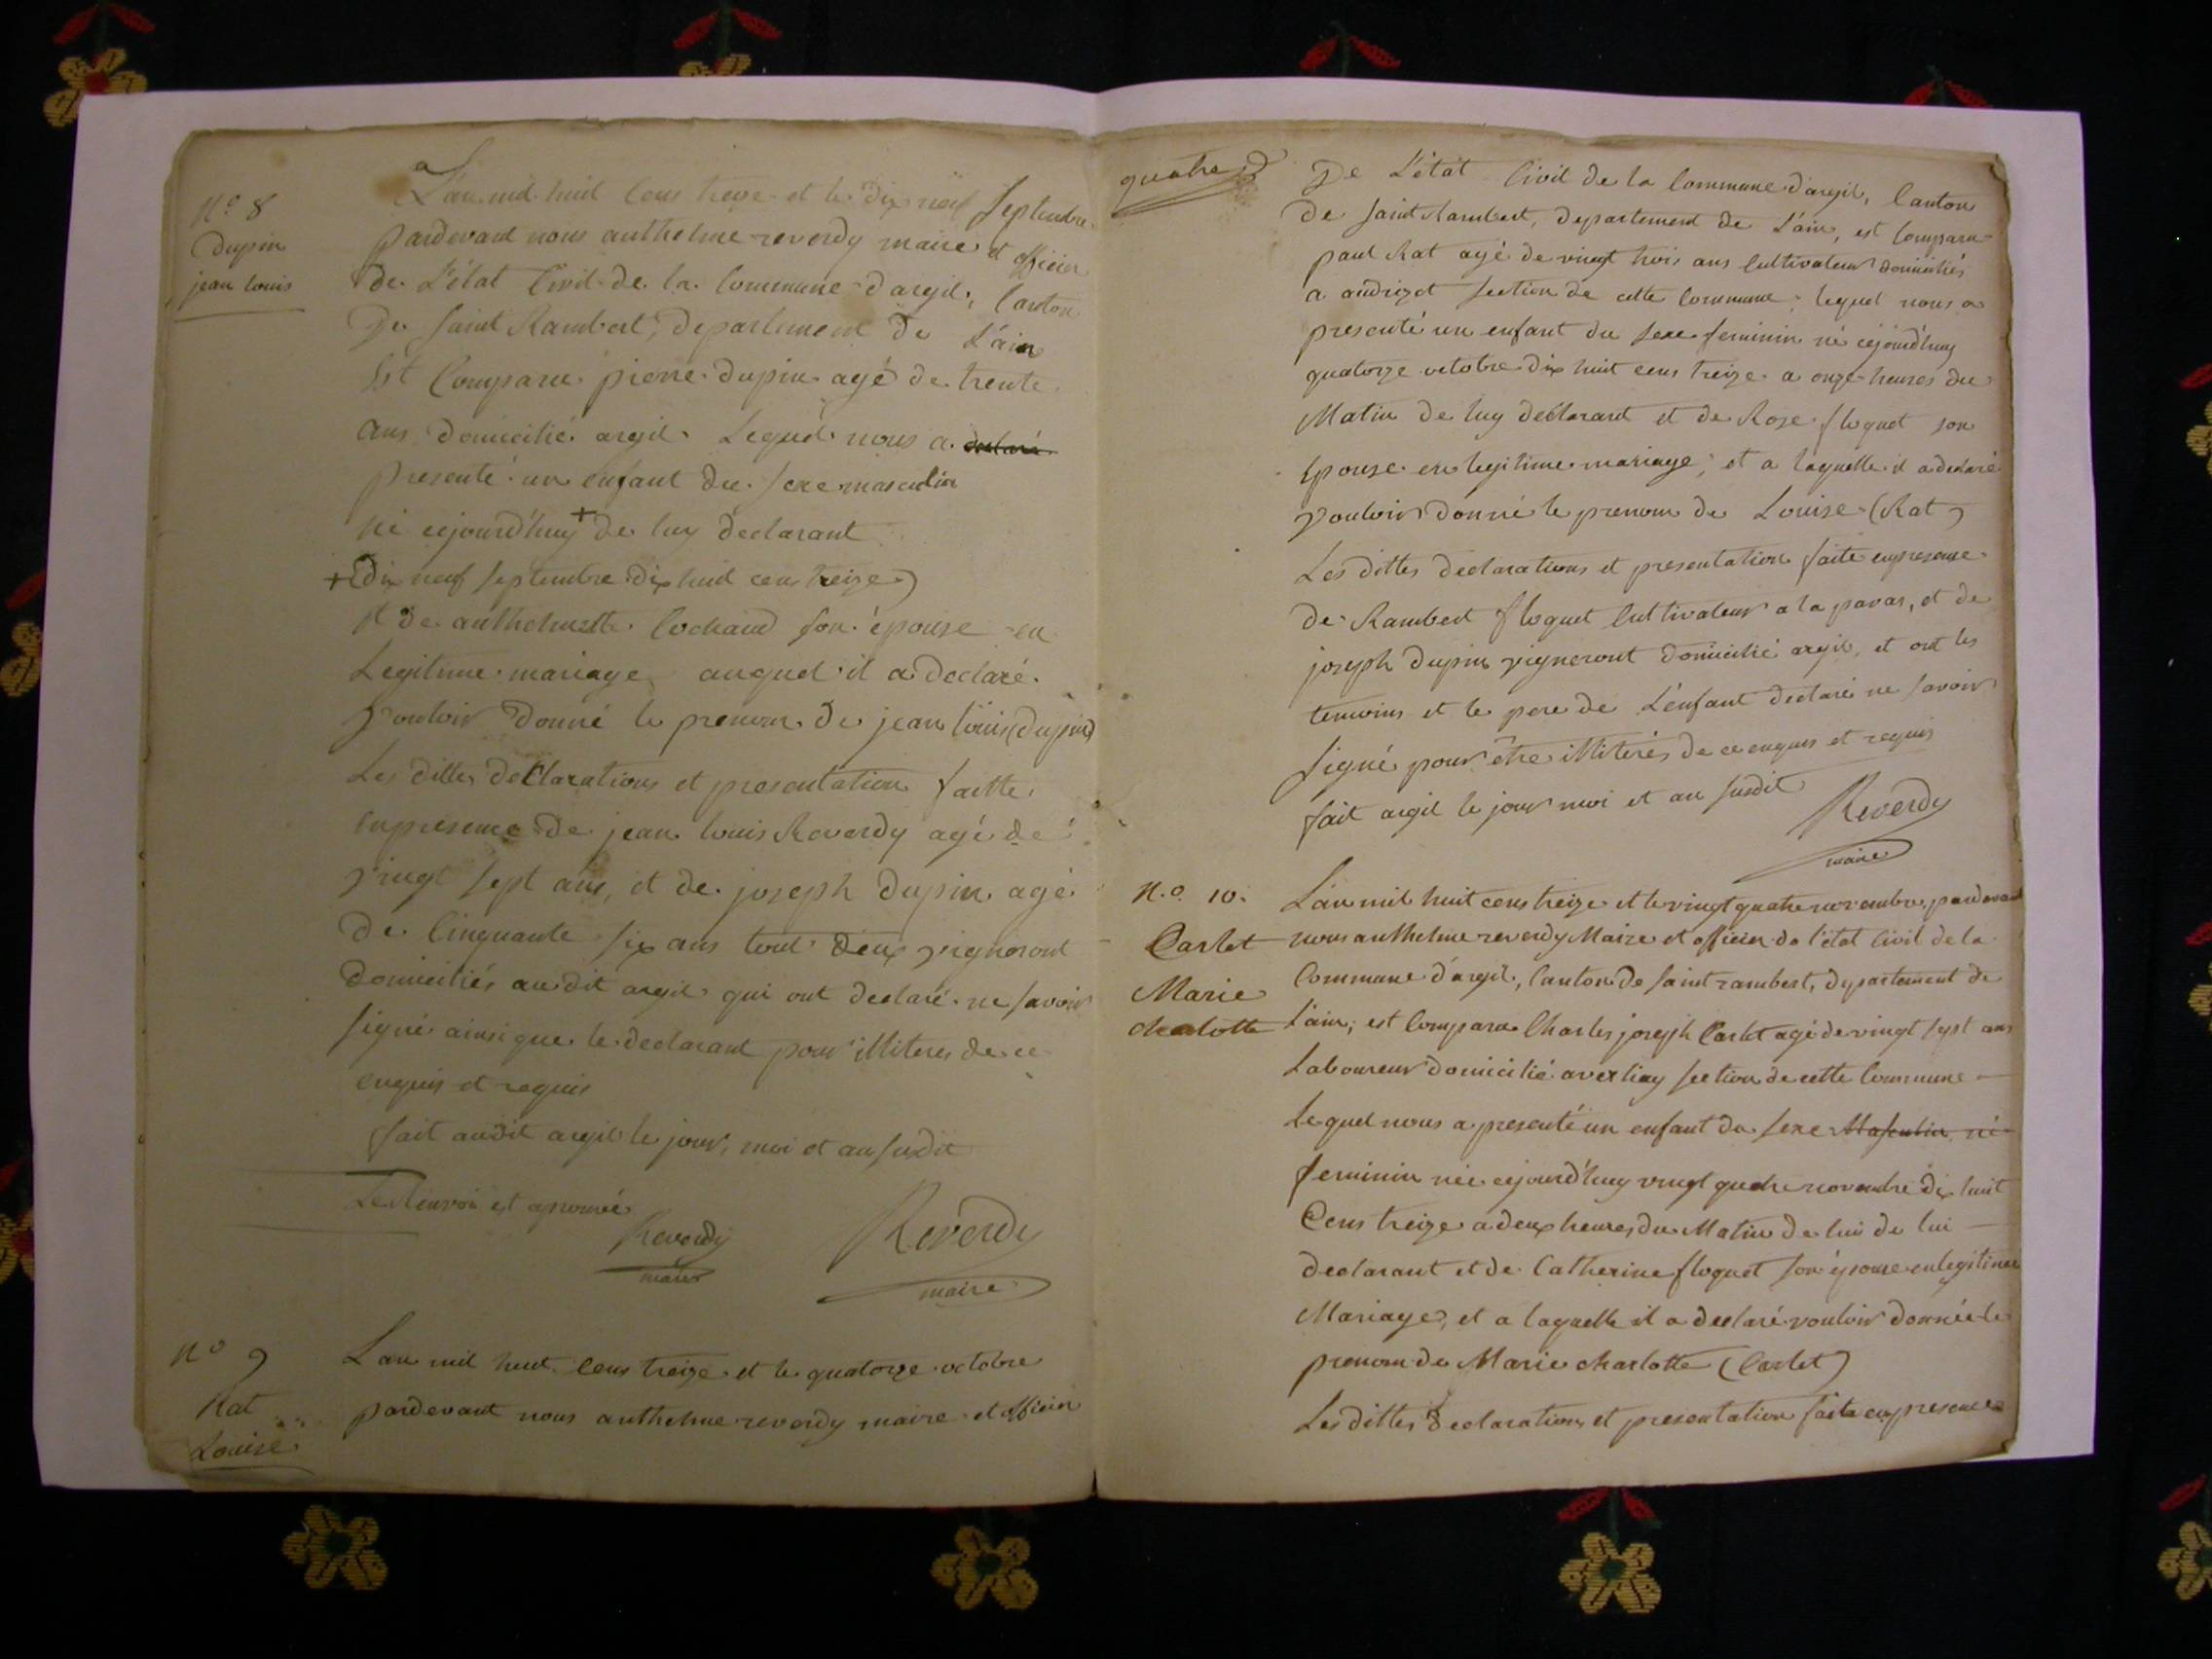 N.o 8
Dupin
jean louis
L'an mil huit cens treize et le dix neuf Septembre
pardevant nous anthelme reverdy maire et officier
de L'état Civil de la Commune d'argil, Canton
De Saint Rambert, departement de L'ain
Est Comparu pierre dupin agé de trente
ans domicilié argil. Lequel nous a declaré
presenté un enfant du sexe masculin
né cejourd'huy + de luy declarant
+ (dix neuf septembre dix huit cens treize)
et de anthelmette Cochaud son épouse en
Legitime mariage auquel il a declaré
vouloir donné le prenom de jean louis (dupin)
Les dittes declarations et presentation faitte
enpresence de jean louis Reverdy agé de
vingt sept ans, et de joseph dupin agé
de Cinquante six ans tout deux vigneront
domiciliés audit argil qui ont declaré ne savoir
signé ainsi que le declarant pour illiteres de ce
enquis et requis
fait audit argil le jour, moi et an susdit
Le Renvoi est aprouvé
Reverdy
maire
Reverdy
maire
N.o 9
Rat
Louise
L'an mil huit cens treize et le quatorze octobre
pardevant nous anthelme reverdy maire et officier
quatre
De L'état Civil de la Commune d'argil, Canton
de saint Rambert, departement de L'ain, est Comparu
paul Rat agé de vingt trois ans Cultivateur domiciliés
a audrizet section de cette Commune lequel nous a
presenté un enfant du sexe feminin né cejourd'huy
quatorze octobre dix huit cens treize a onze heures du
Matin de luy declarant et de Rose floquet son
Epouse en legitime mariage, et a laquelle il a declaré
vouloir donné le prenom de Louise (Rat)
Les dittes declarations et presentation faite enpresence
de Rambert floquet Cultivateur a la pavas, et de
joseph dupin vigneront domicilié argil, et ont les
temoins et le pere de L'enfant declaré ne savoir
signé pour être illiterés de ce enquis et requis
fait argil le jour moi et an susdit
Reverdy
maire
N.o 10.
Carlet
Marie
charlotte
L'an mil huit cens treize et le vingt quatre novembre, pardevant
nous anthelme reverdy Maire et officier de l'état Civil de la
Commune d'argil, Canton de saint rambert, departement de
L'ain, est Comparu Charles joseph Carlet agé de vingt sept ans
Laboureur domicilié a section de cette Commune
Lequel nous a presenté un enfant du sexe Masculin né
feminin née cejourd'huy vingt quatre novembre dix huit
Cens treize a deux heures du Matin de lui de lui
declarant et de Catherine floquet son épouse en legitime
Mariage, et a laquelle il a declaré vouloir donnée le
prenom de Marie charlotte (Carlet)
Les dittes declarations et presentation faite enpresence